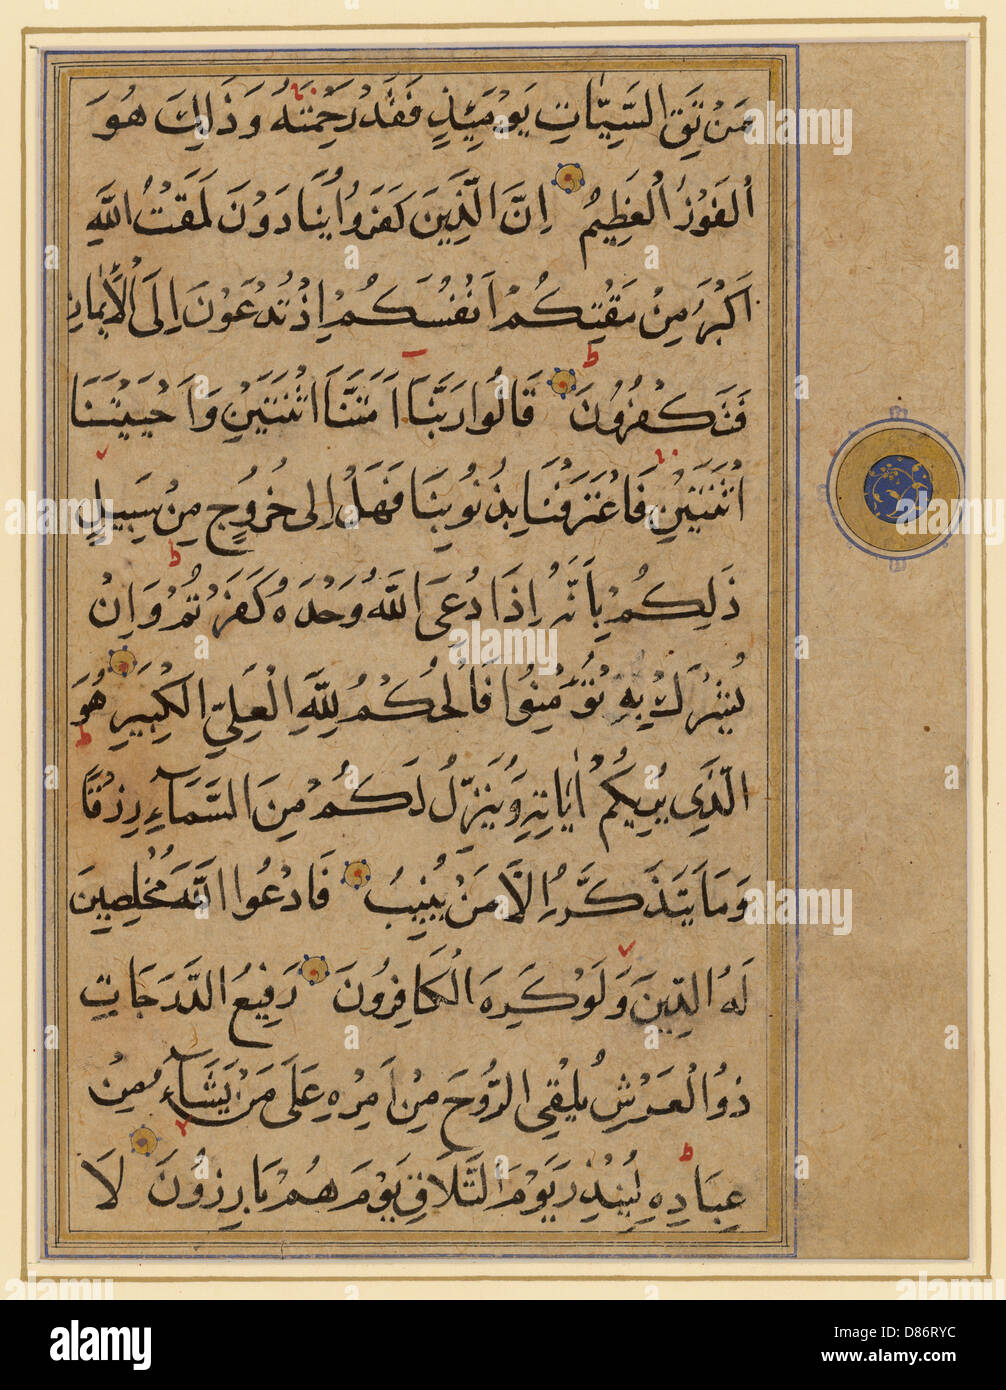 مَنْ تَقِ السَّيِّاٰتِ يَوْمَئِذٍ فَقَدْ رَحِمْتَهُ وَذَلِكَ هُوَ
الْفَوْزُ الْعَظِيمُ اِنَّ الَّذِينَ كَفَرُوا يُنَادَوْنَ لَمَقْتُ اللَّهِ
اَكْبَرُ مِنْ مَقْتِكُمْ اَنْفُسَكُمْ اِذْ تُدْعَوْنَ اِلَى الْاِيمَانِ
فَتَكْفُرُونَ قَالُوا رَبَّنَا اَمَتَّنَا اثْنَتَيْنِ وَاَحْيَيْتَنَا
اثْنَتَيْنِ فَاعْتَرَفْنَا بِذُنُوبِنَا فَهَلْ اِلى خُرُوجٍ مِنْ سَبِيلٍ
ذَلِكُمْ بِاَنَّهُ اِذَا دُعِيَ اللَّهُ وَحْدَهُ كَفَرْتُمْ وَاِنْ
يُشْرَكْ بِهِ تُؤْمِنُوا فَالْحُكْمُ لِلَّهِ الْعَلِيِّ الْكَبِيرِ هُوَ
الَّذِي يُرِيكُمْ اٰيَاتِهِ وَيُنَزِّلُ لَكُمْ مِنَ السَّمَآءِ رِزْقًا
وَمَا يَتَذَكَّرُ اِلَّا مَنْ يُنِيبُ فَادْعُوا اللَّهَ مُخْلِصِينَ
لَهُ الدِّينَ وَلَوْ كَرِهَ الْكَافِرُونَ رَفِيعُ الدَّرَجَاتِ
ذُو الْعَرْشِ يُلْقِي الرُّوحَ مِنْ اَمْرِهِ عَلَى مَنْ يَشَآءُ مِنْ
عِبَادِهِ لِيُنْذِرَ يَوْمَ التَّلَاقِ يَوْمَ هُمْ بَارِزُونَ لَا
alamy
Image ID: D86RYC
www.alamy.com